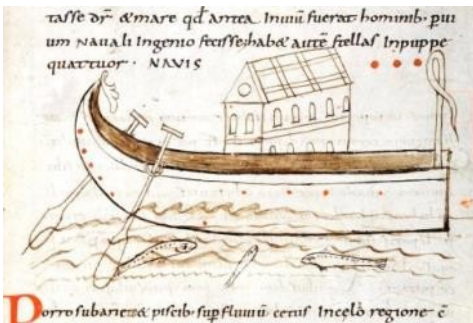 tasse dr̄ & mare qd̄ antea Inuiū fuerat hominib· pui
um Nauali Ingenio fecisse· hab& autē stellas Inpuppe
quattuor · NAVIS
Porro subariete & piscib· sup fluuiū cetus Incelo regione ē